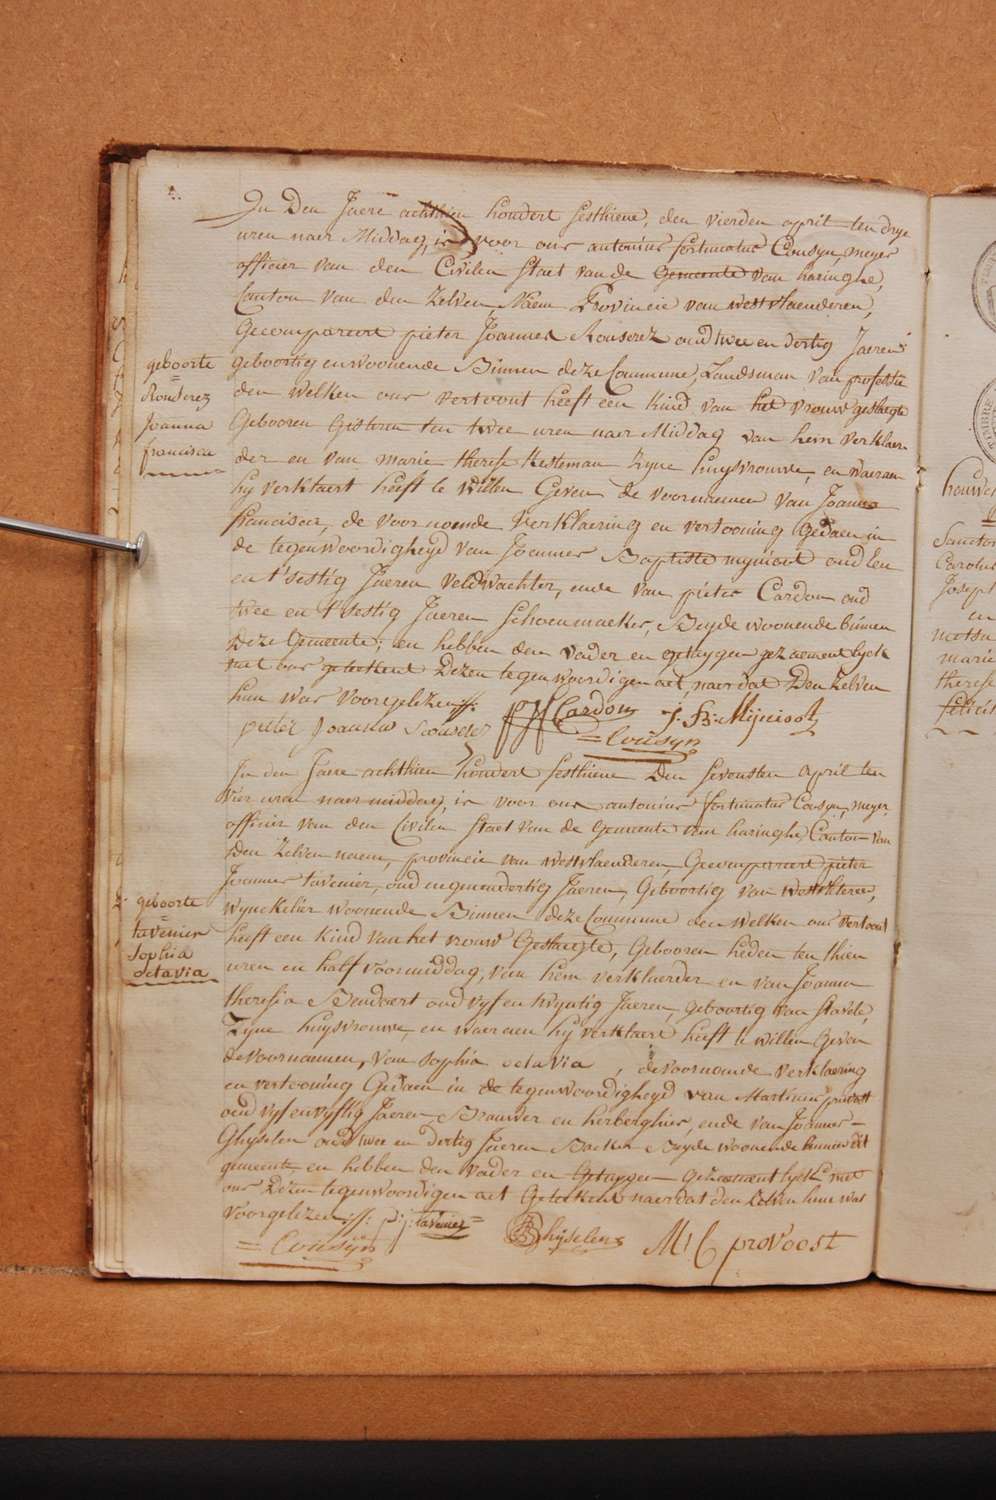 In Den Jaere achthien hondert sesthiene, den vierden april ten drye
uren naer Middag, is voor ons antonius fortunatus Cousyn, meyer
officier van den Civilen staet van de Gemeente van haringhe,
Canton van den Zelven Naem Provincie van westvlaenderen,
Gecompareert pieter Joannes Rouserez oud twee en dertig Jaeren
geboortig en woonende Binnen deze Commune, Landsman van professie
den welken ons vertoont heeft een kind van het vrouw geslagte
Gebooren Gisteren ten twee uren naer Middag van hem verklaer
der en van marie therese Kesteman Zyne huysvrouwe, en waeraen
hy verklaert heeft te willen Geven de voornamen van Joanna
francisca, de voornoemde verklaering en vertooning Gedaen in
de tegenwoordigheyd van Joannes Baptiste mynioot oud een
en t'sestig Jaeren veldwachter, ende van pieter Cardon oud
twee en t'sestig Jaeren schoenmaeker, Beyde woonende binnen
deze Gemeente; en hebben den vader en getuygen gezaementlyck
met ons geteekent Dezen tegenwoordigen act, naer dat Den Zelven
hun was voorgelezen
pieter Joannes Rouserez
Cardon
J: B: Mynioot
= Cousyn
geboorte
=
Rouserez
Joanna
francisca
In den Jaere achthien hondert sesthiene Den sevensten april ten
vier uren naer middag, is voor ons antonius fortunatus Cousyn, meyer
officier van den Civilen staet van de Gemeente van haringhe, Canton van
den Zelven naem, provincie van westvlaenderen, Gecompareert pieter
Joannes tavenier, oud een en dertig Jaeren, Geboortig van westvleteren,
wynckelier woonende Binnen deze Commune den welken ons vertoont
heeft een kind van het vrouw Geslagte, Gebooren heden ten thien
uren en half voormiddag, van hem verklaerder en van Joanna
theresia Bendoert oud vyf en twyntig Jaeren, geboortig van Stavele,
Zyne huysvrouwe, en waer aen hy verklaert heeft te willen Geven
de voornamen, van sophia octavia, de voornoemde verklaering
en vertooning Gedaen in de tegenwoordigheyd van Martinus provost
oud vyf en vyftig Jaeren Brauwer en herberghier, ende van Joannes
Ghyselen oud twee en dertig Jaeren Backer Beyde woonende binnen dit
gemeente en hebben den vader en Getuygen Gezaementlyck met
ons Dezen tegenwoordigen act Geteekent naer dat den Zelven hun was
voorgelezen
p: j: tavenier
= Cousyn
Ghyselen
M: C provoost
geboorte
=
tavenier
sophia
octavia
houwel
Sancton
Carolus
Joseph
en
marie
therese
felicit